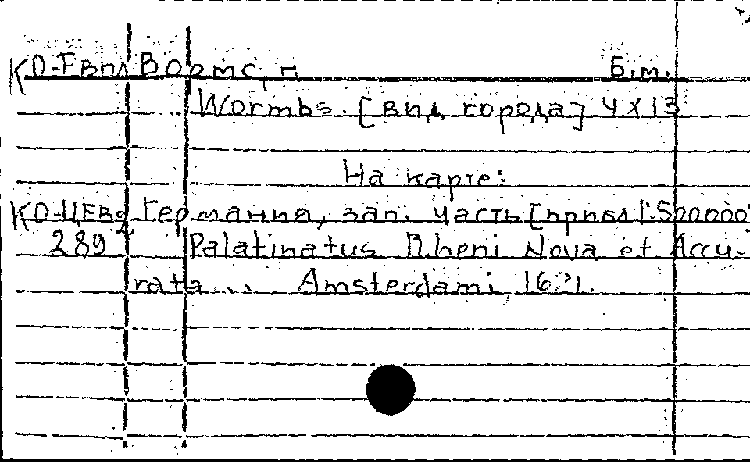 КО-Гвпл Вормс, г. Б.м.
Wormbs. [вид города] 4х13
На карте:
КО-ЦЕвр Германия, зап. часть [прибл 1:500000]
289 Palatinatus Rheni Nova et Accu-
rata... Amsterdami, 1621.